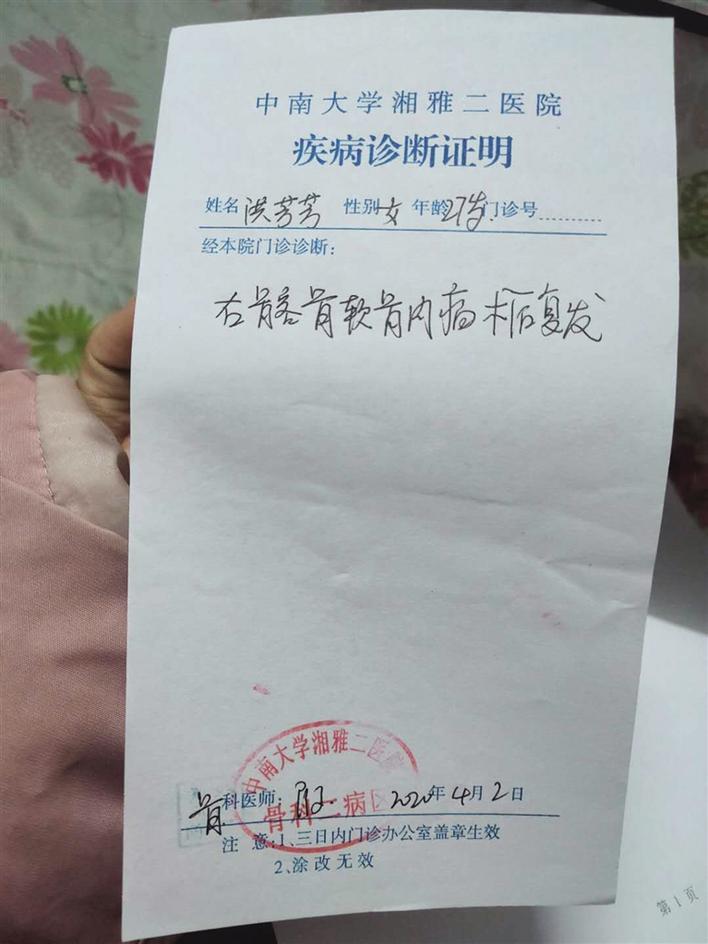 中南大学湘雅二医院
疾病诊断证明
姓名 洪芳芳 性别 女 年龄 27岁 门诊号
经本院门诊诊断:
右骨客骨软骨内瘤术后复发
中南大学湘雅二医院
骨科二病区
骨 科医师: 2020年4月2日
注 意:1、三日内门诊办公室盖章生效
2、涂改无效
第1页